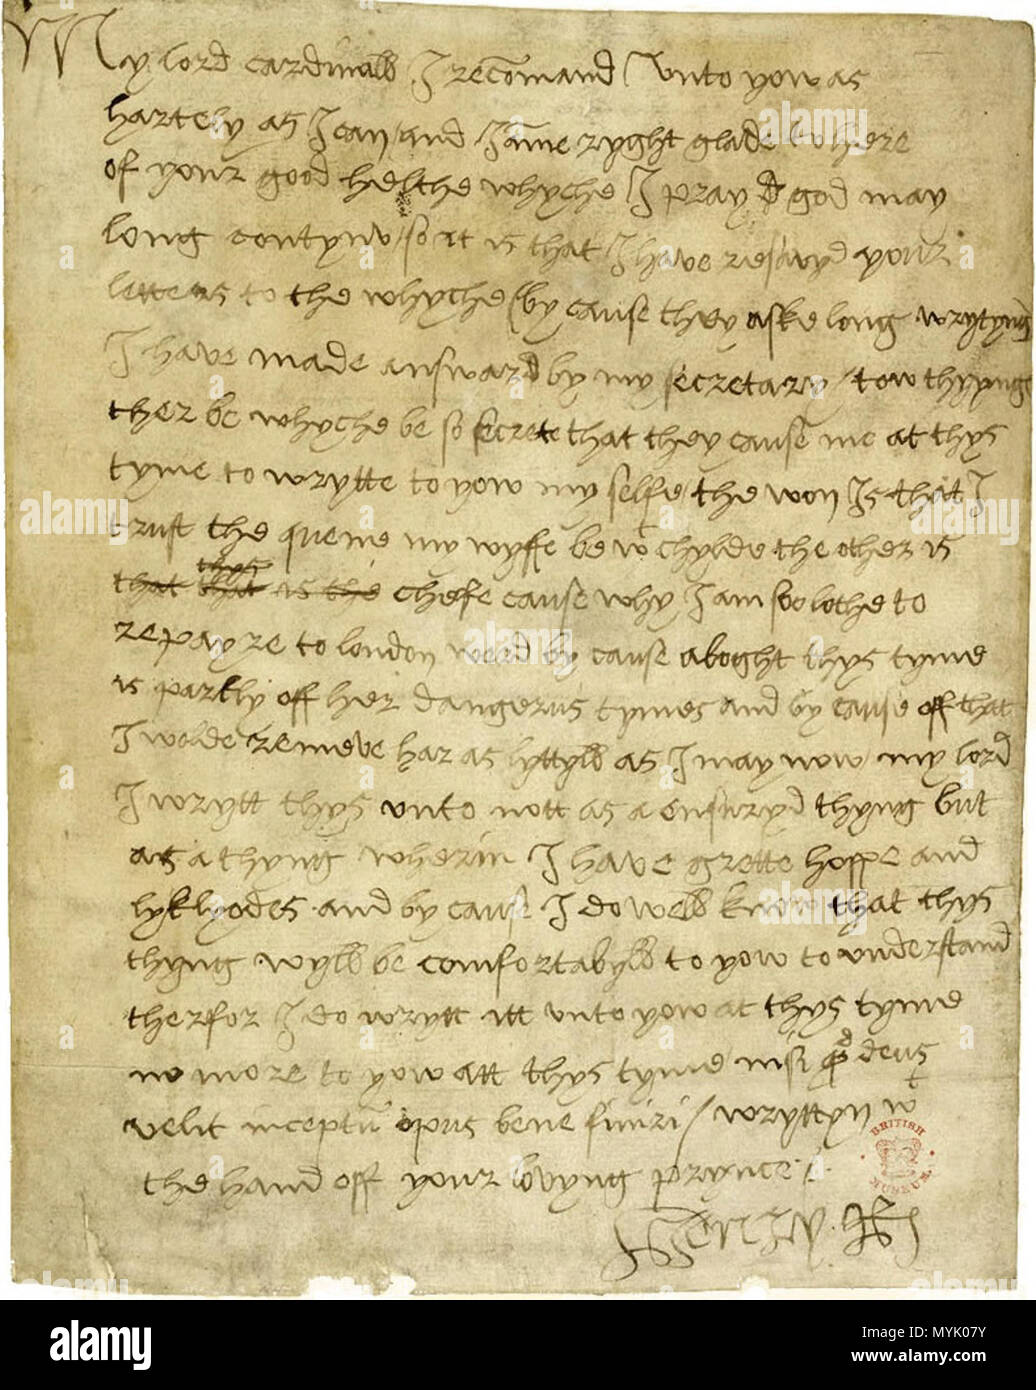 My lord cardinall I recomand unto yow as
hartely as I can and I ame ryght glade to here
of your good helthe whyche I pray god may
long contynu / so it is that I have resavyd your
letters to the whyche (by cause they aske long wrytyng)
I have made answard by my secretary / tow thyngs
ther be whyche be so secrete that they cause me at thys
tyme to wrytte to yow my selfe / the won is that I
trust the quene my wyffe be wt chylde the other is
that that thys is the chefe cause why I am soo lothe to
repayre to london ward by cause aboght thys tyme
is partly off her dangerus tymes and by cause off that
I wolde remeve har as lyttyll as I may now / my lord
I wrytt thys unto nott as a ensuryd thyng but
as a thyng wherin I have grette hoppe and
lyklyodes and by cause I do well know that thys
thyng wyll be comfortabyll to yow to understand
therfor I do wrytt itt unto yow at thys tyme
no more to yow att thys tyme / nisi qd deus
velit inceptu opus bene finiri / wryttyn wt
the hand off your lovyng prynce
Henry R
BRITISH MUSEUM
alamy
a
alamy
Image ID: MYJK07Y
www.alamy.com